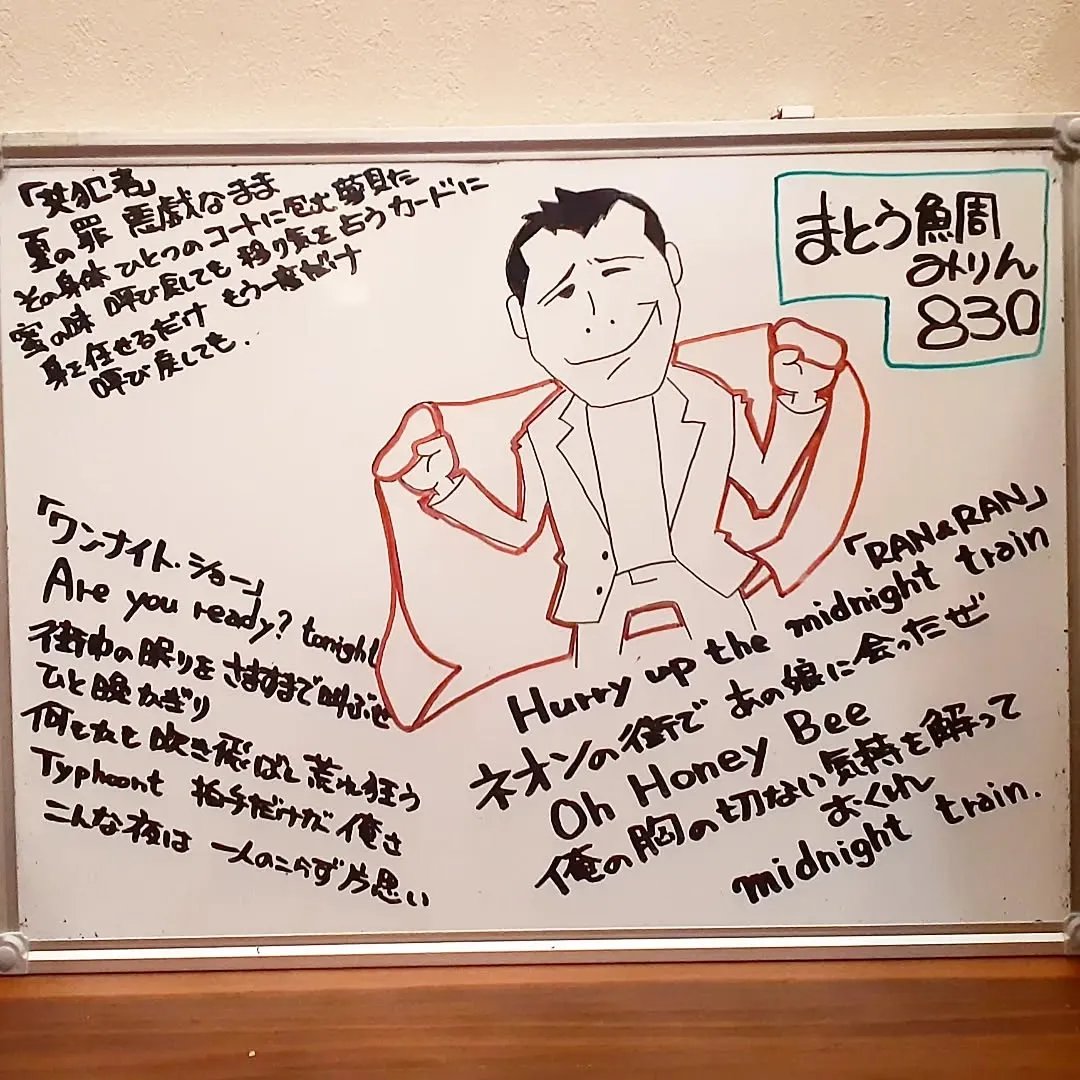 「共犯者」
夏の罪 悪戯なまま
その身体 ひとつのコートに包む夢見た
蜜の味 呼び戻しても 移り気を占うカードに
身を任せるだけ もう一度だけ
呼び戻しても.
まとう鯛
みりん
830
「ワンナイト・ショー」
Are you ready? tonight
街中の眠りを さますまで叫ぶぜ
ひと晩かぎり
何もかも 吹き飛ばし 荒れ狂う
Typhoont 拍手だけだ 俺さ
こんな夜は 一人のこらず片思い
「RAN&RAN」
Hurry up the midnight train
ネオンの街で あの娘に会ったぜ
Oh Honey Bee
俺の胸の切ない気持を解って
おくれ
midnight train.